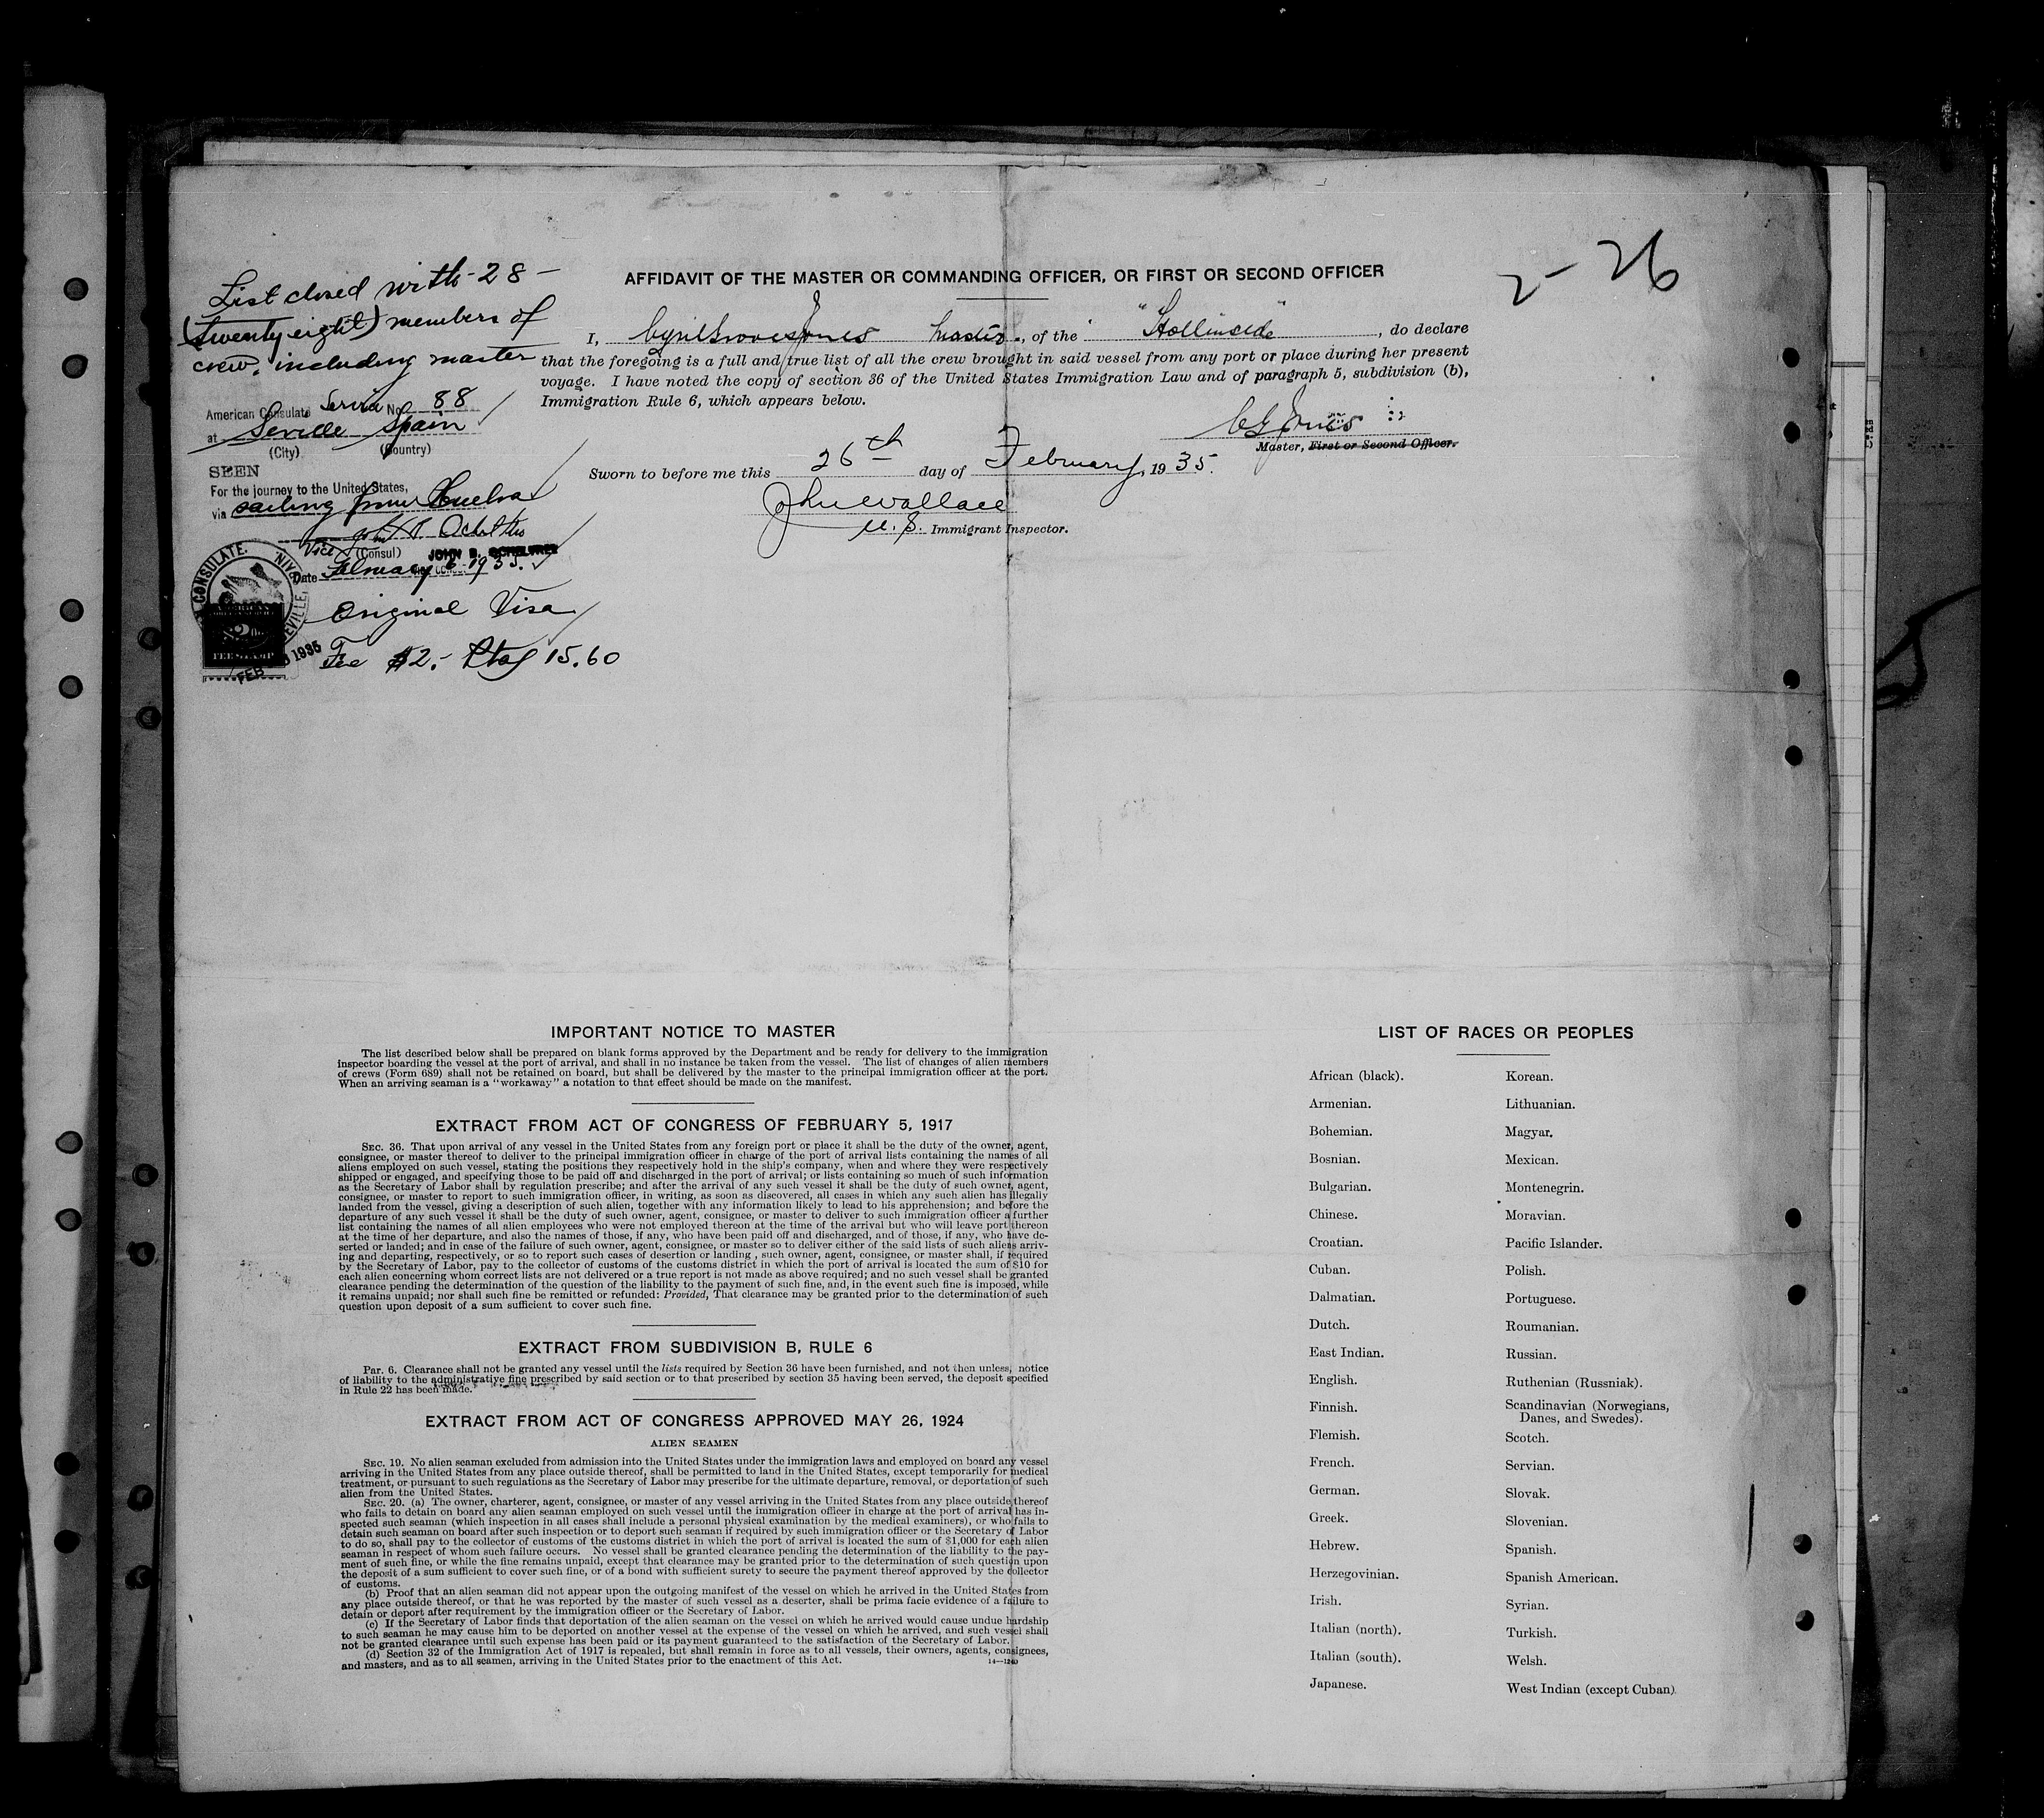 List closed with - 28 -
(twenty eight) members of
crew, including master
American Consulate Service No. 88
at Seville Spain
(City) (Country)
SEEN
For the journey to the United States,
via sailing from Huelva
Vice (Consul)
Date February 6 1935.
CONSULATE.
SEVILLE,
FEE STAMP
FEB 1935
Original Visa
Fee $2.- Ptas 15.60
2-26
AFFIDAVIT OF THE MASTER OR COMMANDING OFFICER, OR FIRST OR SECOND OFFICER
I, Cyril Groves Jones Master, of the "Hollinside", do declare
that the foregoing is a full and true list of all the crew brought in said vessel from any port or place during her present
voyage. I have noted the copy of section 36 of the United States Immigration Law and of paragraph 5, subdivision (b),
Immigration Rule 6, which appears below.
CG Jones
Master, First or Second Officer.
Sworn to before me this 26th day of February, 1935.
John Wallace
U.S. Immigrant Inspector.
IMPORTANT NOTICE TO MASTER
The list described below shall be prepared on blank forms approved by the Department and be ready for delivery to the immigration
inspector boarding the vessel at the port of arrival, and shall in no instance be taken from the vessel. The list of changes of alien members
of crews (Form 689) shall not be retained on board, but shall be delivered by the master to the principal immigration officer at the port.
When an arriving seaman is a "workaway" a notation to that effect should be made on the manifest.
EXTRACT FROM ACT OF CONGRESS OF FEBRUARY 5, 1917
SEC. 36. That upon arrival of any vessel in the United States from any foreign port or place it shall be the duty of the owner, agent,
consignee, or master thereof to deliver to the principal immigration officer in charge of the port of arrival lists containing the names of all
aliens employed on such vessel, stating the positions they respectively hold in the ship's company, when and where they were respectively
shipped or engaged, and specifying those to be paid off and discharged in the port of arrival; or lists containing so much of such information
as the Secretary of Labor shall by regulation prescribe; and after the arrival of any such vessel it shall be the duty of such owner, agent,
consignee, or master to report to such immigration officer, in writing, as soon as discovered, all cases in which any such alien has illegally
landed from the vessel, giving a description of such alien, together with any information likely to lead to his apprehension; and before the
departure of any such vessel it shall be the duty of such owner, agent, consignee, or master to deliver to such immigration officer a further
list containing the names of all alien employees who were not employed thereon at the time of the arrival but who will leave port thereon
at the time of her departure, and also the names of those, if any, who have been paid off and discharged, and of those, if any, who have de-
serted or landed; and in case of the failure of such owner, agent, consignee, or master so to deliver either of the said lists of such aliens arriv-
ing and departing, respectively, or so to report such cases of desertion or landing, such owner, agent, consignee, or master shall, if required
by the Secretary of Labor, pay to the collector of customs of the customs district in which the port of arrival is located the sum of $10 for
each alien concerning whom correct lists are not delivered or a true report is not made as above required; and no such vessel shall be granted
clearance pending the determination of the question of the liability to the payment of such fine, and, in the event such fine is imposed, while
it remains unpaid; nor shall such fine be remitted or refunded: Provided, That clearance may be granted prior to the determination of such
question upon deposit of a sum sufficient to cover such fine.
EXTRACT FROM SUBDIVISION B, RULE 6
PAR. 6. Clearance shall not be granted any vessel until the lists required by Section 36 have been furnished, and not then unless, notice
of liability to the administrative fine prescribed by said section or to that prescribed by section 35 having been served, the deposit specified
in Rule 22 has been made.
EXTRACT FROM ACT OF CONGRESS APPROVED MAY 26, 1924
ALIEN SEAMEN
SEC. 19. No alien seaman excluded from admission into the United States under the immigration laws and employed on board any vessel
arriving in the United States from any place outside thereof, shall be permitted to land in the United States, except temporarily for medical
treatment, or pursuant to such regulations as the Secretary of Labor may prescribe for the ultimate departure, removal, or deportation of such
alien from the United States.
SEC. 20. (a) The owner, charterer, agent, consignee, or master of any vessel arriving in the United States from any place outside thereof
who fails to detain on board any alien seaman employed on such vessel until the immigration officer in charge at the port of arrival has in-
spected such seaman (which inspection in all cases shall include a personal physical examination by the medical examiners), or who fails to
detain such seaman on board after such inspection or to deport such seaman if required by such immigration officer or the Secretary of Labor
to do so, shall pay to the collector of customs of the customs district in which the port of arrival is located the sum of $1,000 for each alien
seaman in respect of whom such failure occurs. No vessel shall be granted clearance pending the determination of the liability to the pay-
ment of such fine, or while the fine remains unpaid, except that clearance may be granted prior to the determination of such question upon
the deposit of a sum sufficient to cover such fine, or of a bond with sufficient surety to secure the payment thereof approved by the collector
of customs.
(b) Proof that an alien seaman did not appear upon the outgoing manifest of the vessel on which he arrived in the United States from
any place outside thereof, or that he was reported by the master of such vessel as a deserter, shall be prima facie evidence of a failure to
detain or deport after requirement by the immigration officer or the Secretary of Labor.
(c) If the Secretary of Labor finds that deportation of the alien seaman on the vessel on which he arrived would cause undue hardship
to such seaman he may cause him to be deported on another vessel at the expense of the vessel on which he arrived, and such vessel shall
not be granted clearance until such expense has been paid or its payment guaranteed to the satisfaction of the Secretary of Labor.
(d) Section 32 of the Immigration Act of 1917 is repealed, but shall remain in force as to all vessels, their owners, agents, consignees,
and masters, and as to all seamen, arriving in the United States prior to the enactment of this Act.
LIST OF RACES OR PEOPLES
African (black).
Armenian.
Bohemian.
Bosnian.
Bulgarian.
Chinese.
Croatian.
Cuban.
Dalmatian.
Dutch.
East Indian.
English.
Finnish.
Flemish.
French.
German.
Greek.
Hebrew.
Herzegovinian.
Irish.
Italian (north).
Italian (south).
Japanese.
Korean.
Lithuanian.
Magyar.
Mexican.
Montenegrin.
Moravian.
Pacific Islander.
Polish.
Portuguese.
Roumanian.
Russian.
Ruthenian (Russniak).
Scandinavian (Norwegians,
Danes, and Swedes).
Scotch.
Servian.
Slovak.
Slovenian.
Spanish.
Spanish American.
Syrian.
Turkish.
Welsh.
West Indian (except Cuban).